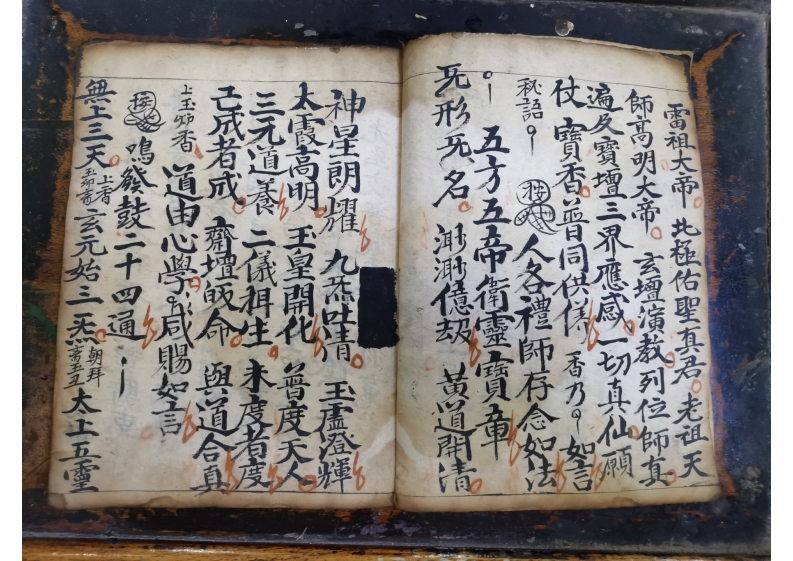 雷祖大帝 北極佑聖真君 老祖天
師高明大帝 玄壇演教列位師真
遍及寶壇三界應感一切真仙願
仗寶香普同供養 香乃 如言
秘語 人各禮師存念如法
五方五帝衛靈寶章
旡形旡名 渺渺億劫 黃道開清
神星朗耀 九炁吐清 玉虛澄輝
太霞高明 玉皇開化 普度天人
三元道養 二儀相生 未度者度
已成者成 齋壇既命 與道合真
上玉卯香 道由心學 咸賜如言
鳴發鼓二十四通
無上三天 玉卯壽 上香 玄元始三炁 朝拜 太上五靈